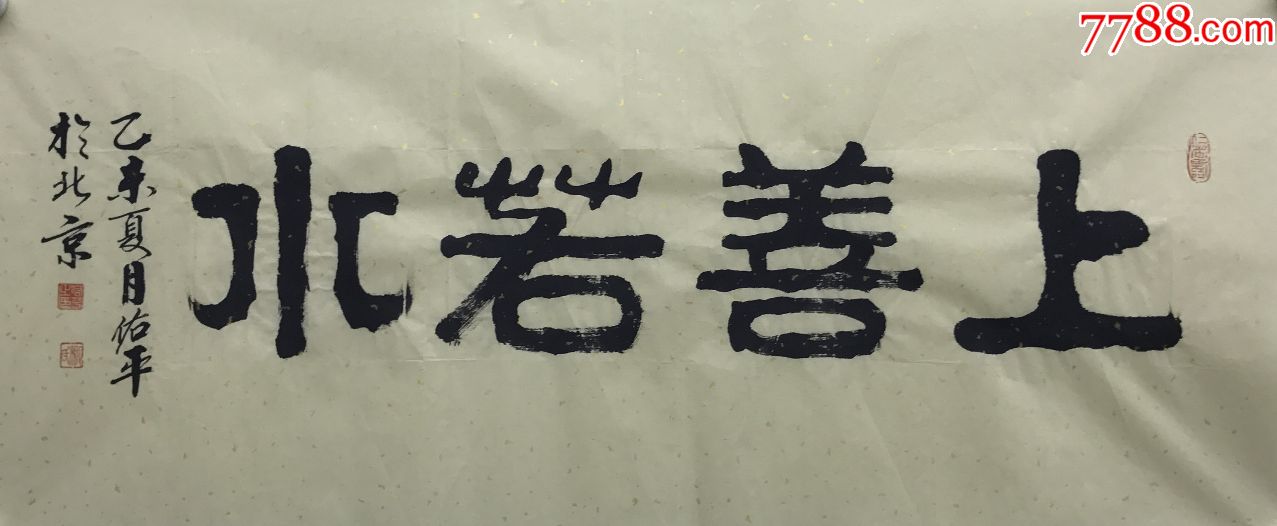 上善若水
乙未夏月佑平
於北京
7788.com